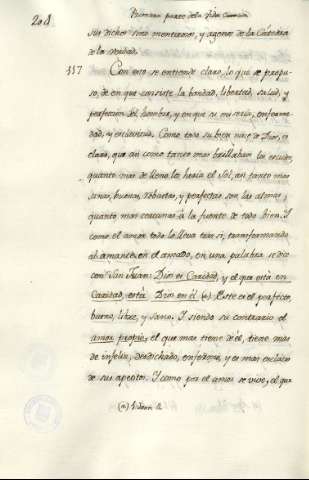 208 Primera parte de la Vida
sus dichos son mentirosos, y agenos de la Cathedra
de la verdad.
117 Con esto se entiende claro, lo que se propu-
so, de en que consiste la bondad, libertad, salud, y
perfeccion del hombre, y en que su miseria, enferme-
dad, y esclavitud. Como todo su bien nace de Dios, es
claro, que asi como tanto mas brillaban los escudos
quanto mas de lleno los heria el Sol, en tanto mas
sanas, buenas, robustas, y perfectas son las almas,
quanto mas cercanas à la fuente de todo bien. Y
como el amor todo lo lleva tras si, transformando
al amante en el amado, en una palabra se dice
con San Juan: Dios es Caridad, y el que està en
Caridad, està Dios en èl (a). Este es el perfecto,
bueno, libre, y sano. Y siendo su contrario el
amor propio, el que mas tiene de èl, tiene mas
de infeliz, desdichado, enfermo, y es mas esclavo
de sus apetitos. Y como por el amor se vive, el que
(a)